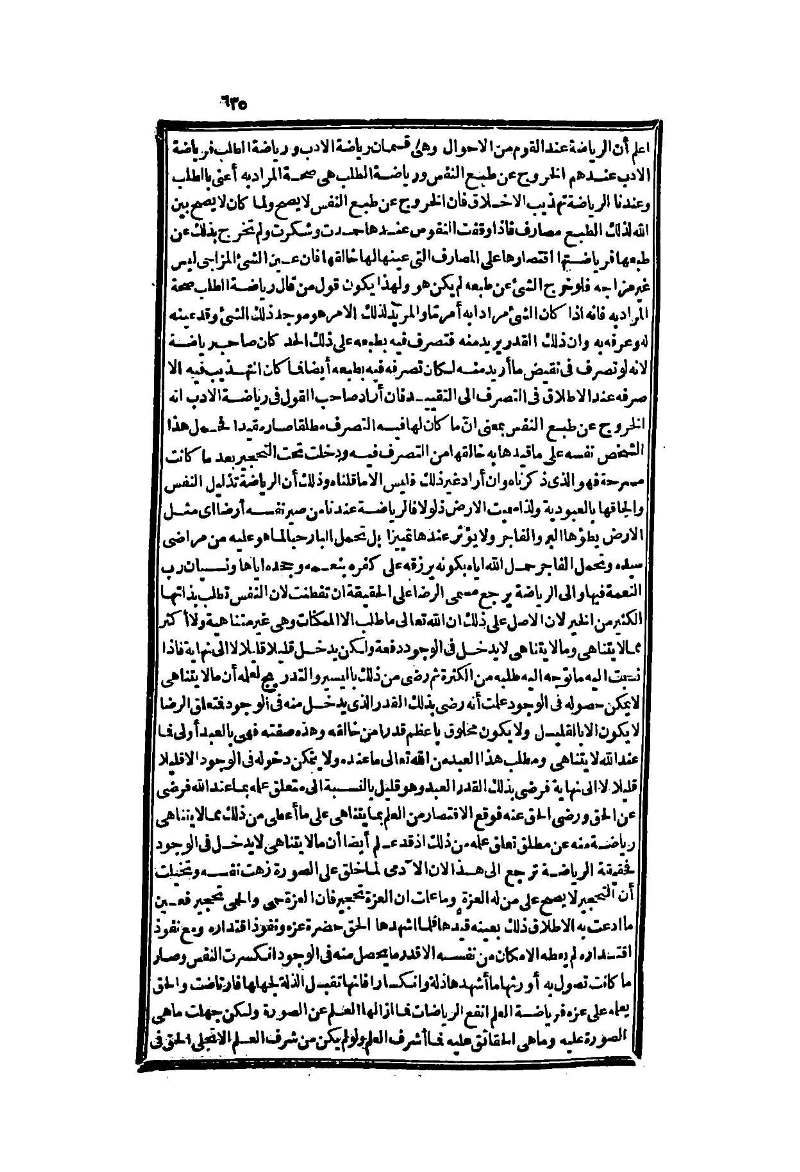 ٦٣٥
اعلم أن الرياضة عند القوم من الاحوال وهى قسمان رياضة الادب ورياضة الطلب فرياضة
الادب عندهم الخروج عن طبع النفس ورياضة الطلب هى صحة المراد به أعنى بالطلب
وعندنا الرياضة تهذيب الاخلاق فان الخروج عن طبع النفس لا يصح ولما كان لا يصح بين
الله لذلك الطبع مصارف فاذا وقفت النفوس عندها حمدت وشكرت ولم تخرج بذلك عن
طبعها فرياضتها اقتصارها على المصارف التى عينها لها خالقها فان عين الشئ المزاجى ليس
غير مزاجه فلو خرج الشئ عن طبعه لم يكن هو ولهذا يكون قول من قال رياضة الطلب صحة
المراد به فانه اذا كان الشئ مرادا به أمر ما والمريد لذلك الامر هو موجد ذلك الشئ وقد عينه
له وعرفه به وان ذلك القدر يريد منه فتصرف فيه بطبعه على ذلك الحد كان صاحب رياضة
لانه لو تصرف فى نقيض ما أريد منه لكان تصرفه فيه بطبعه أيضا فما كان التهذيب فيه الا
صرفه عند الاطلاق فى التصرف الى التقييد فان أراد صاحب القول فى رياضة الادب انه
الخروج عن طبع النفس بمعنى ان ما كان لها فيه التصرف مطلقا صار مقيدا فحمل هذا
الشخص نفسه على ما قيدها به خالقها من التصرف فيه ودخلت تحت التحجير بعد ما كانت
مسرحة فهو الذى ذكرناه وان أراد غير ذلك فليس الا ما قلناه وذلك أن الرياضة تذليل النفس
والحاقها بالعبودية ولذا سميت الارض ذلولا فالرياضة عندنا من صير نفسه أرضا اى مثل
الارض يطؤها البر والفاجر ولا يؤثر عندها تمييزا بل تحمل البار حبا لما هو عليه من مراضى
سيده وتحمل الفاجر حمل الله اياه بكونه يرزقه على كفره بنعمه وجحده اياها ونسيان رب
النعمة فيها والى الرياضة يرجع مسمى الرضا على الحقيقة ان تفطنت لان النفس تطلب بذاتها
الكثير من الخير لان الاصل على ذلك ان الله تعالى ما طلب الا الممكنات وهى غير متناهية ولا أكثر
مما لا يتناهى وما لا يتناهى لا يدخل فى الوجود دفعة ولكن يدخل قليلا قليلا لا الى نهاية فاذا
نسبت اليه ما توجه اليه طلبه من الكثرة ثم رضى من ذلك باليسير والتدريج لعله أن ما لا يتناهى
لا يمكن حصوله فى الوجود علمت أنه رضى بذلك القدر الذى يدخل منه فى الوجود فتعلق الرضا
لا يكون الا بالقليل ولا يكون مخلوق باعظم قدرا من خالقه وهذه صفته فهى بالعبد أولى فما
عند الله لا يتناهى ومطلب هذا العبد من الله تعالى ما عنده ولا يمكن دخوله فى الوجود الا قليلا
قليلا لا الى نهاية فرضى بذلك القدر العبد وهو قليل بالنسبة الى متعلق علمه بما عند الله فرضى
عن الحق ورضى الحق عنه فوقع الاقتصار من العلم بما يتناهى على ما أعطى من ذلك مما لا يتناهى
رياضة منه عن مطلق تعلق علمه من ذلك اذ قد علم أيضا أن ما لا يتناهى لا يدخل فى الوجود
فحقيقة الرياضة ترجع الى هذا لان الآدمى لما خلق على الصورة زهت نفسه وتخيلت
أن التحجير لا يصح على من له العزة وما علمت ان العزة تحجير فان العزة حمى والحمى تحجير فعين
ما ادعت به الاطلاق ذلك بعينه قيدها فلما اشهدها الحق حضرة عزه ونفوذ اقتداره ومع نفوذ
اقتداره لم يعطه الامكان من نفسه الا قدر ما يحصل منه فى الوجود انكسرت النفس وصار
ما كانت تصول به أورثها ما أشهدها ذلة وانكسارا فانها تقبل الذلة لجهلها فارتاضت والحق
يعلمه على عزه فرياضة العلم انفع الرياضات فما ازالها العلم عن الصورة ولكن جهلت ما هى
الصورة عليه وما هى الحقائق عليه فما أشرف العلم ولو لم يكن من شرف العلم الا تجلى الحق فى